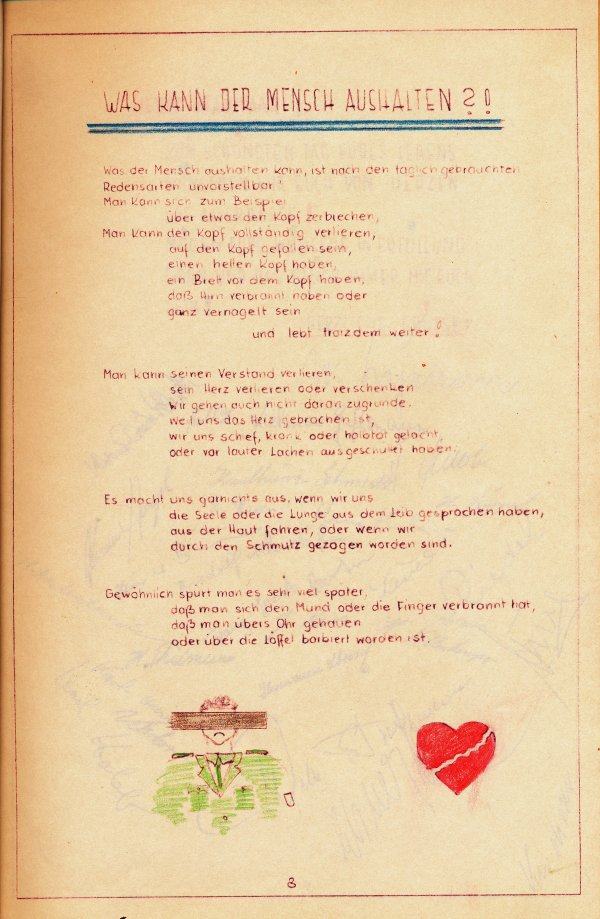 WAS KANN DER MENSCH AUSHALTEN ?!
Was der Mensch aushalten kann, ist nach den täglich gebrauchten
Redensarten unvorstellbar!
Man kann sich zum Beispiel
über etwas den Kopf zerbrechen,
Man kann den Kopf vollständig verlieren,
auf den Kopf gefallen sein,
einen hellen Kopf haben,
ein Brett vor dem Kopf haben,
daß Hirn verbrannt haben oder
ganz vernagelt sein
und lebt trotzdem weiter!
Man kann seinen Verstand verlieren,
sein Herz verlieren oder verschenken
Wir gehen auch nicht daran zugrunde.
Weil uns das Herz gebrochen ist,
wir uns schief, krank oder halbtot gelacht,
oder vor lauter Lachen ausgeschüttet haben.
Es macht uns garnichts aus, wenn wir uns
die Seele oder die Lunge aus dem Leib gesprochen haben,
aus der Haut fahren, oder wenn wir
durch den Schmutz gezogen worden sind.
Gewöhnlich spürt man es sehr viel später,
daß man sich den Mund oder die Finger verbrannt hat,
daß man übers Ohr gehauen
oder über die Löffel barbiert worden ist.
8